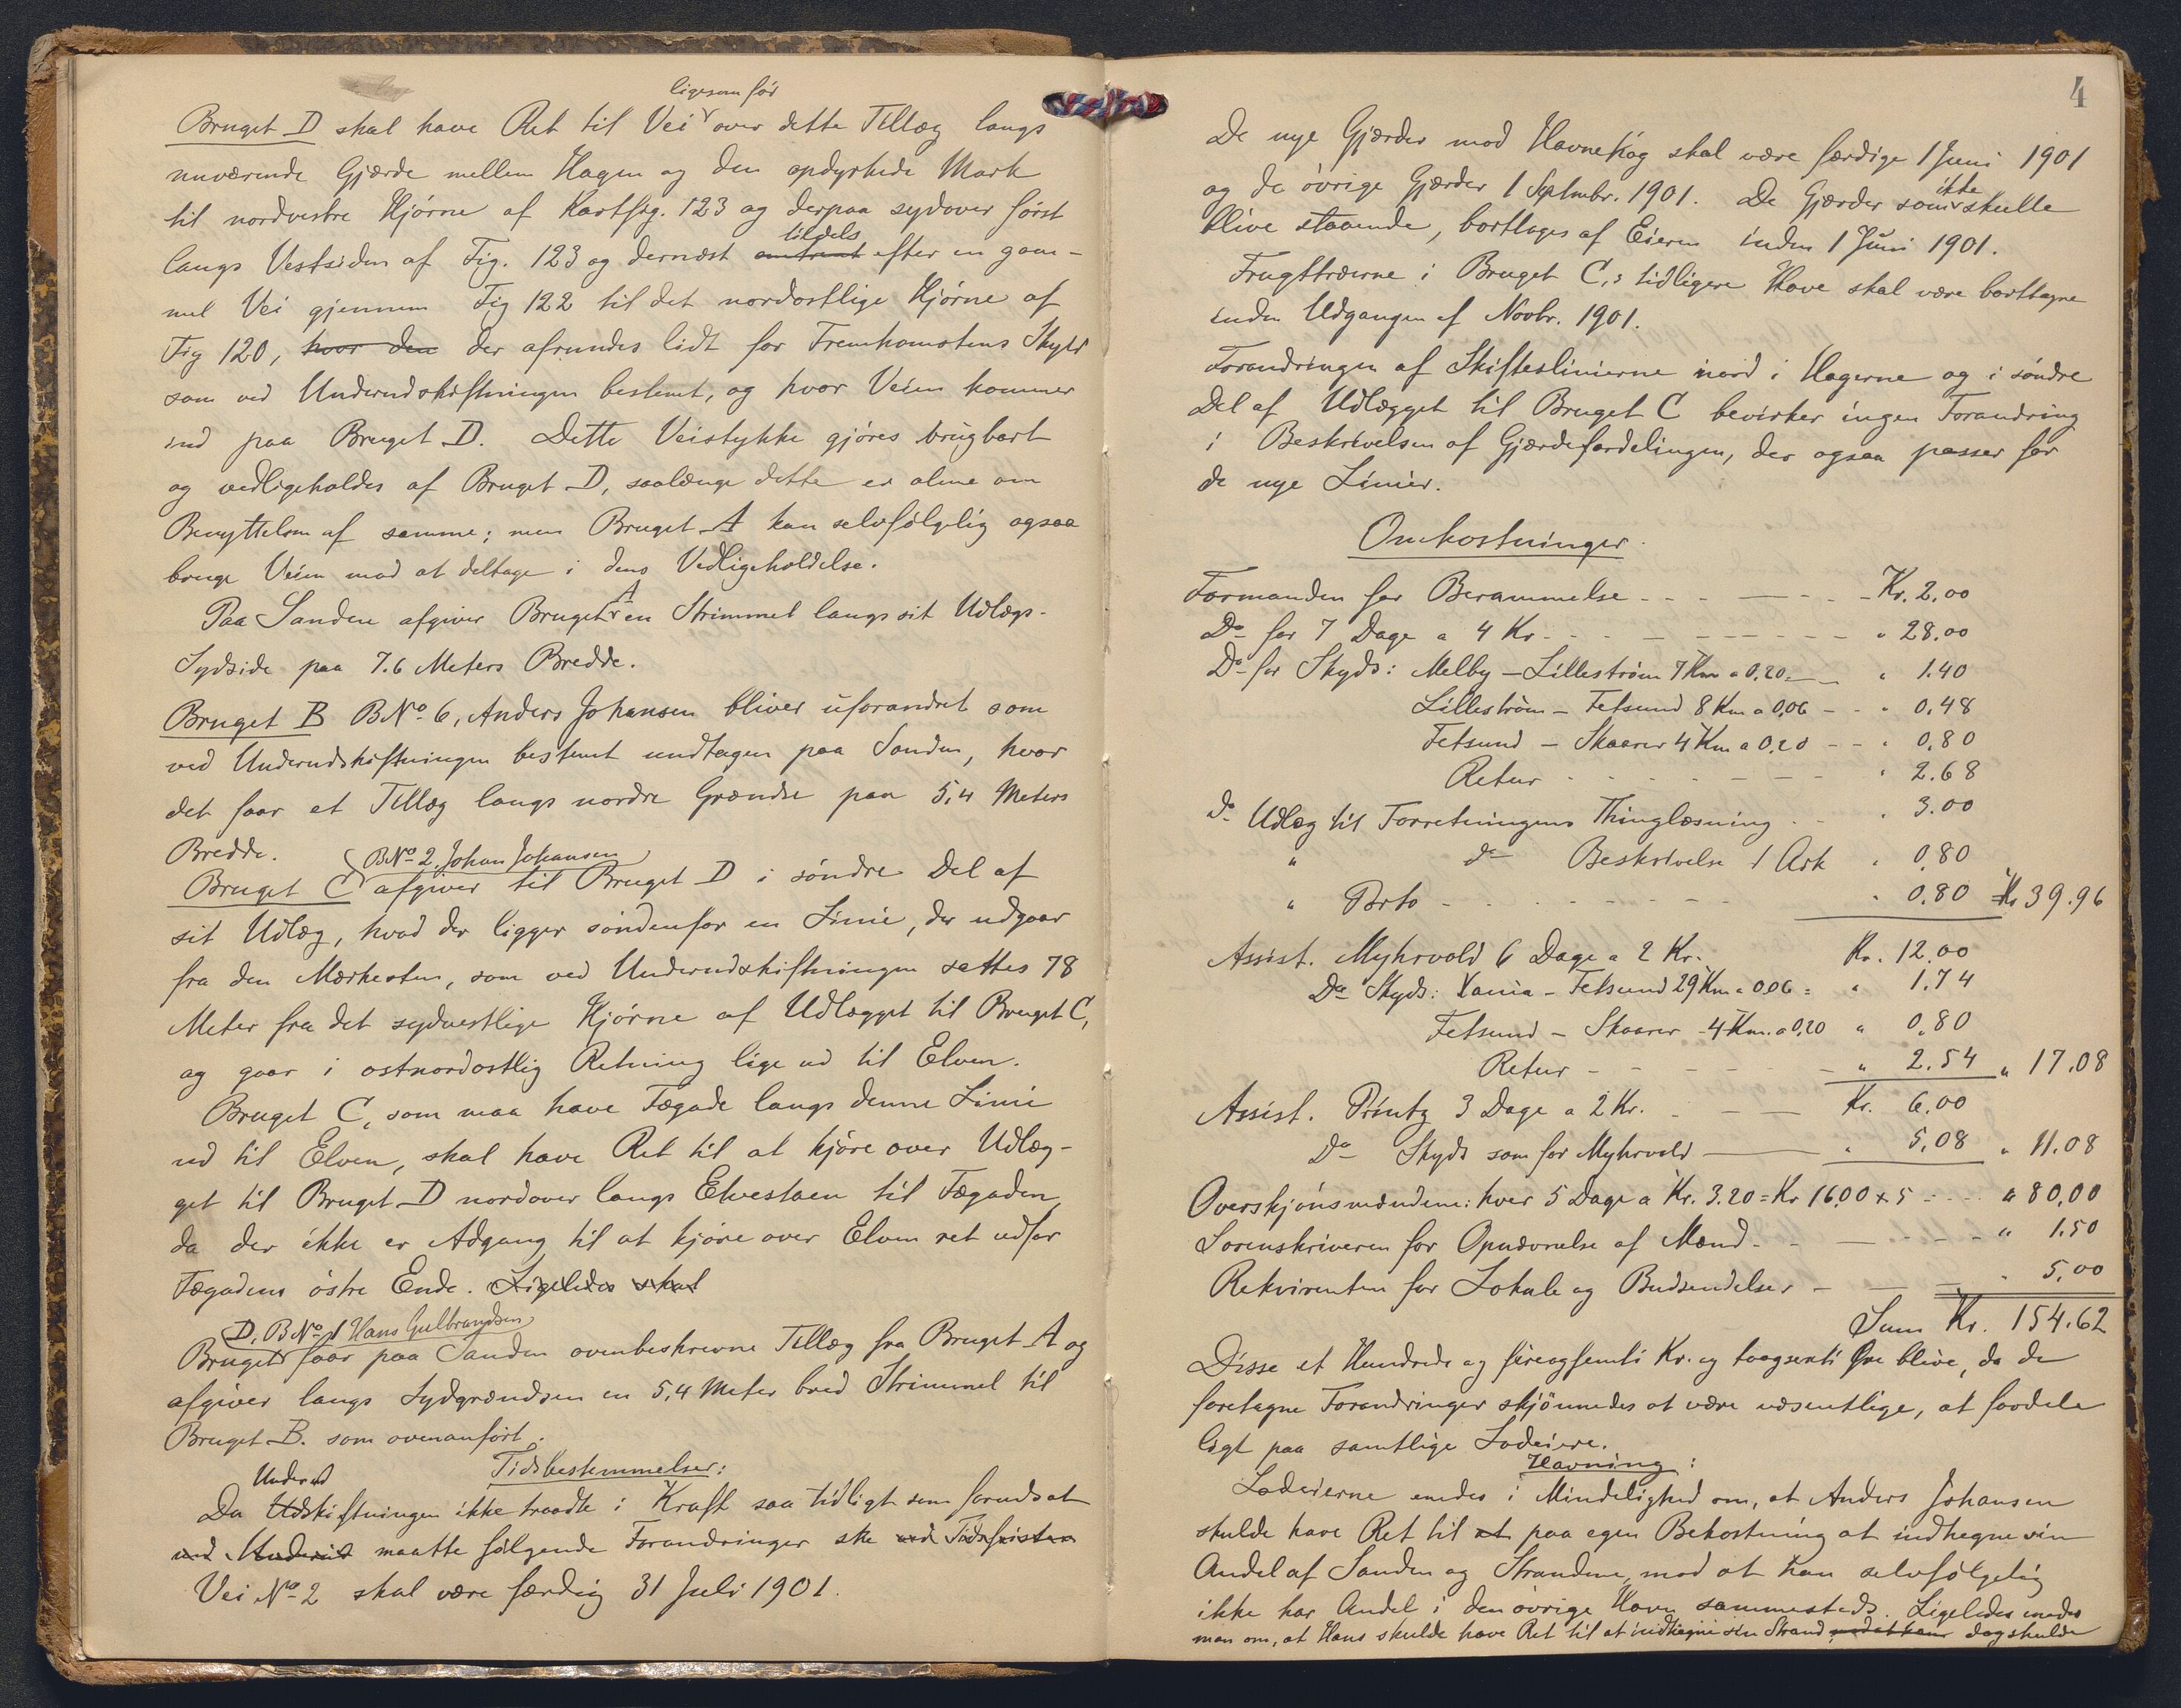 ligesom før
Bruget D skal have Ret til Vei over dette Tillæg langs
nuværende Gjærde mellem Hagen og den opdyrkede Mark
til nordvestre Hjørne af Kartfig. 123 og derpaa sydover først
tildels
langs Vestsiden af Fig. 123 og dernæst omtrent efter en gam-
mel Vei gjennem Fig 122 til det nordostlige Hjørne af
Fig 120, hvor den der afrundes lidt for Fremkomstens Skyld
som ved Underudskiftningen bestemt, og hvor Veien kommer
ind paa Bruget D. Dette Veistykke gjøres brugbart
og vedligeholdes af Bruget D, saalænge dette er alene om
Benyttelsen af samme; men Bruget A kan selvfølgelig ogsaa
bruge Veien mod at deltage i dens Vedligeholdelse.
Paa Sanden afgiver Bruget A en Strimmel langs sit Udlægs-
Sydside paa 7.6 Meters Bredde.
Bruget B BNo 6, Anders Johansen bliver uforandret som
ved Underudskiftningen bestemt undtagen paa Sanden, hvor
det faar et Tillæg langs nordre Grændse paa 5,4 Meters
Bredde.
BNo 2. Johan Johansen
Bruget C afgiver til Bruget D i søndre Del af
sit Udlæg, hvad der ligger søndenfor en Linie, der udgaar
fra den Mærkesten, som ved Underudskiftningen sattes 78
Meter fra det sydvestlige Hjørne af Udlægget til Bruget C,
og gaar i ostnordostlig Retning lige ud til Elven.
Bruget C, som maa have Fægade langs denne Linie
ud til Elven, skal have Ret til at kjøre over Udlæg-
get til Bruget D nordover langs Elvestøen til Fægaden,
da der ikke er Adgang til at kjøre over Elven ret udfor
Fægadens østre Ende. Ligeledes skal
D, BNo 1 Hans Gulbrandsen
Bruget faar paa Sanden ovenbeskrevne Tillæg fra Bruget A og
afgiver langs Sydgrændsen en 5,4 Meter bred Strimmel til
Bruget B. som ovenanført.
Tidsbestemmelser:
Underud
Da Udskiftningen ikke traadte i Kraft saa tidligt som forudsat
ved Underud maatte følgende Forandringer ske ved Tidsfristen
Vei No 2 skal være færdig 31 Juli 1901.
4
De nye Gjærder mod Havnehag skal være færdige 1 Juni 1901
og de øvrige Gjærder 1 Septmbr. 1901. De Gjærder som ikke skulle
blive staaende, borttages af Eieren inden 1 Juni 1901.
Frugttræerne i Bruget C,s tidligere Have skal være borttagne
inden Udgangen af Novbr. 1901.
Forandringen af Skifteslinierne nord i Hagerne og i søndre
Del af Udlægget til Bruget C bevirker ingen Forandring
i Beskrivelsen af Gjærdefordelingen, der ogsaa passer for
de nye Linier.
Omkostninger.
Formanden for Berammelse - - - - Kr. 2,00
Do for 7 Dage a 4 Kr. - - - " 28,00
Do for Skyds: Melby - Lillestrøm 7 Km a 0,20 = " 1.40
Lillestrøm - Fetsund 8 Km a 0,06 - " 0,48
Fetsund - Skaarer 4 Km a 0,20 - - " 0,80
Retur - - - " 2.68
Do Udlæg til Forretningens Thinglæsning - " 3.00
" do Beskrivelse 1 Ark " 0,80
" Porto - - - " 0,80 Kr 39.96
Assist. Myhrvold 6 Dage a 2 Kr. Kr. 12,00
Do Skyds: Xania - Fetsund 29 Km a 0,06 = " 1.74
Fetsund - Skaarer - 4 Km. a 0,20 " 0,80
Retur - - - " 2.54 " 17.08
Assist. Printz 3 Dage a 2 Kr. - - Kr. 6,00
Do Skyds som for Myhrvold - " 5,08 " 11.08
Overskjønsmændene: hver 5 Dage a Kr. 3.20 = Kr 16,00 x 5 = - - " 80,00
Sorenskriveren for Opnævnelse af Mænd - - - " 1.50
Rekvirenten for Lokale og Budsendelser - - " 5,00
Sum Kr. 154.62
Disse et Hundrede og fireogfemti Kr. og toogsexti Øre blive, da de
foretagne Forandringer skjønnedes at være væsentlige, at fordele
ligt paa samtlige Lodeiere.
Havning:
Lodeierne enedes i Mindelighed om, at Anders Johansen
skulde have Ret til at paa egen Bekostning at indhegne sin
Andel af Sanden og Strandene, mod at han selvfølgelig
ikke har Andel i den øvrige Havn sammesteds. Ligeledes enedes
man om, at Hans skulde have Ret til at indhegne sin Strand mod at han dog skulde